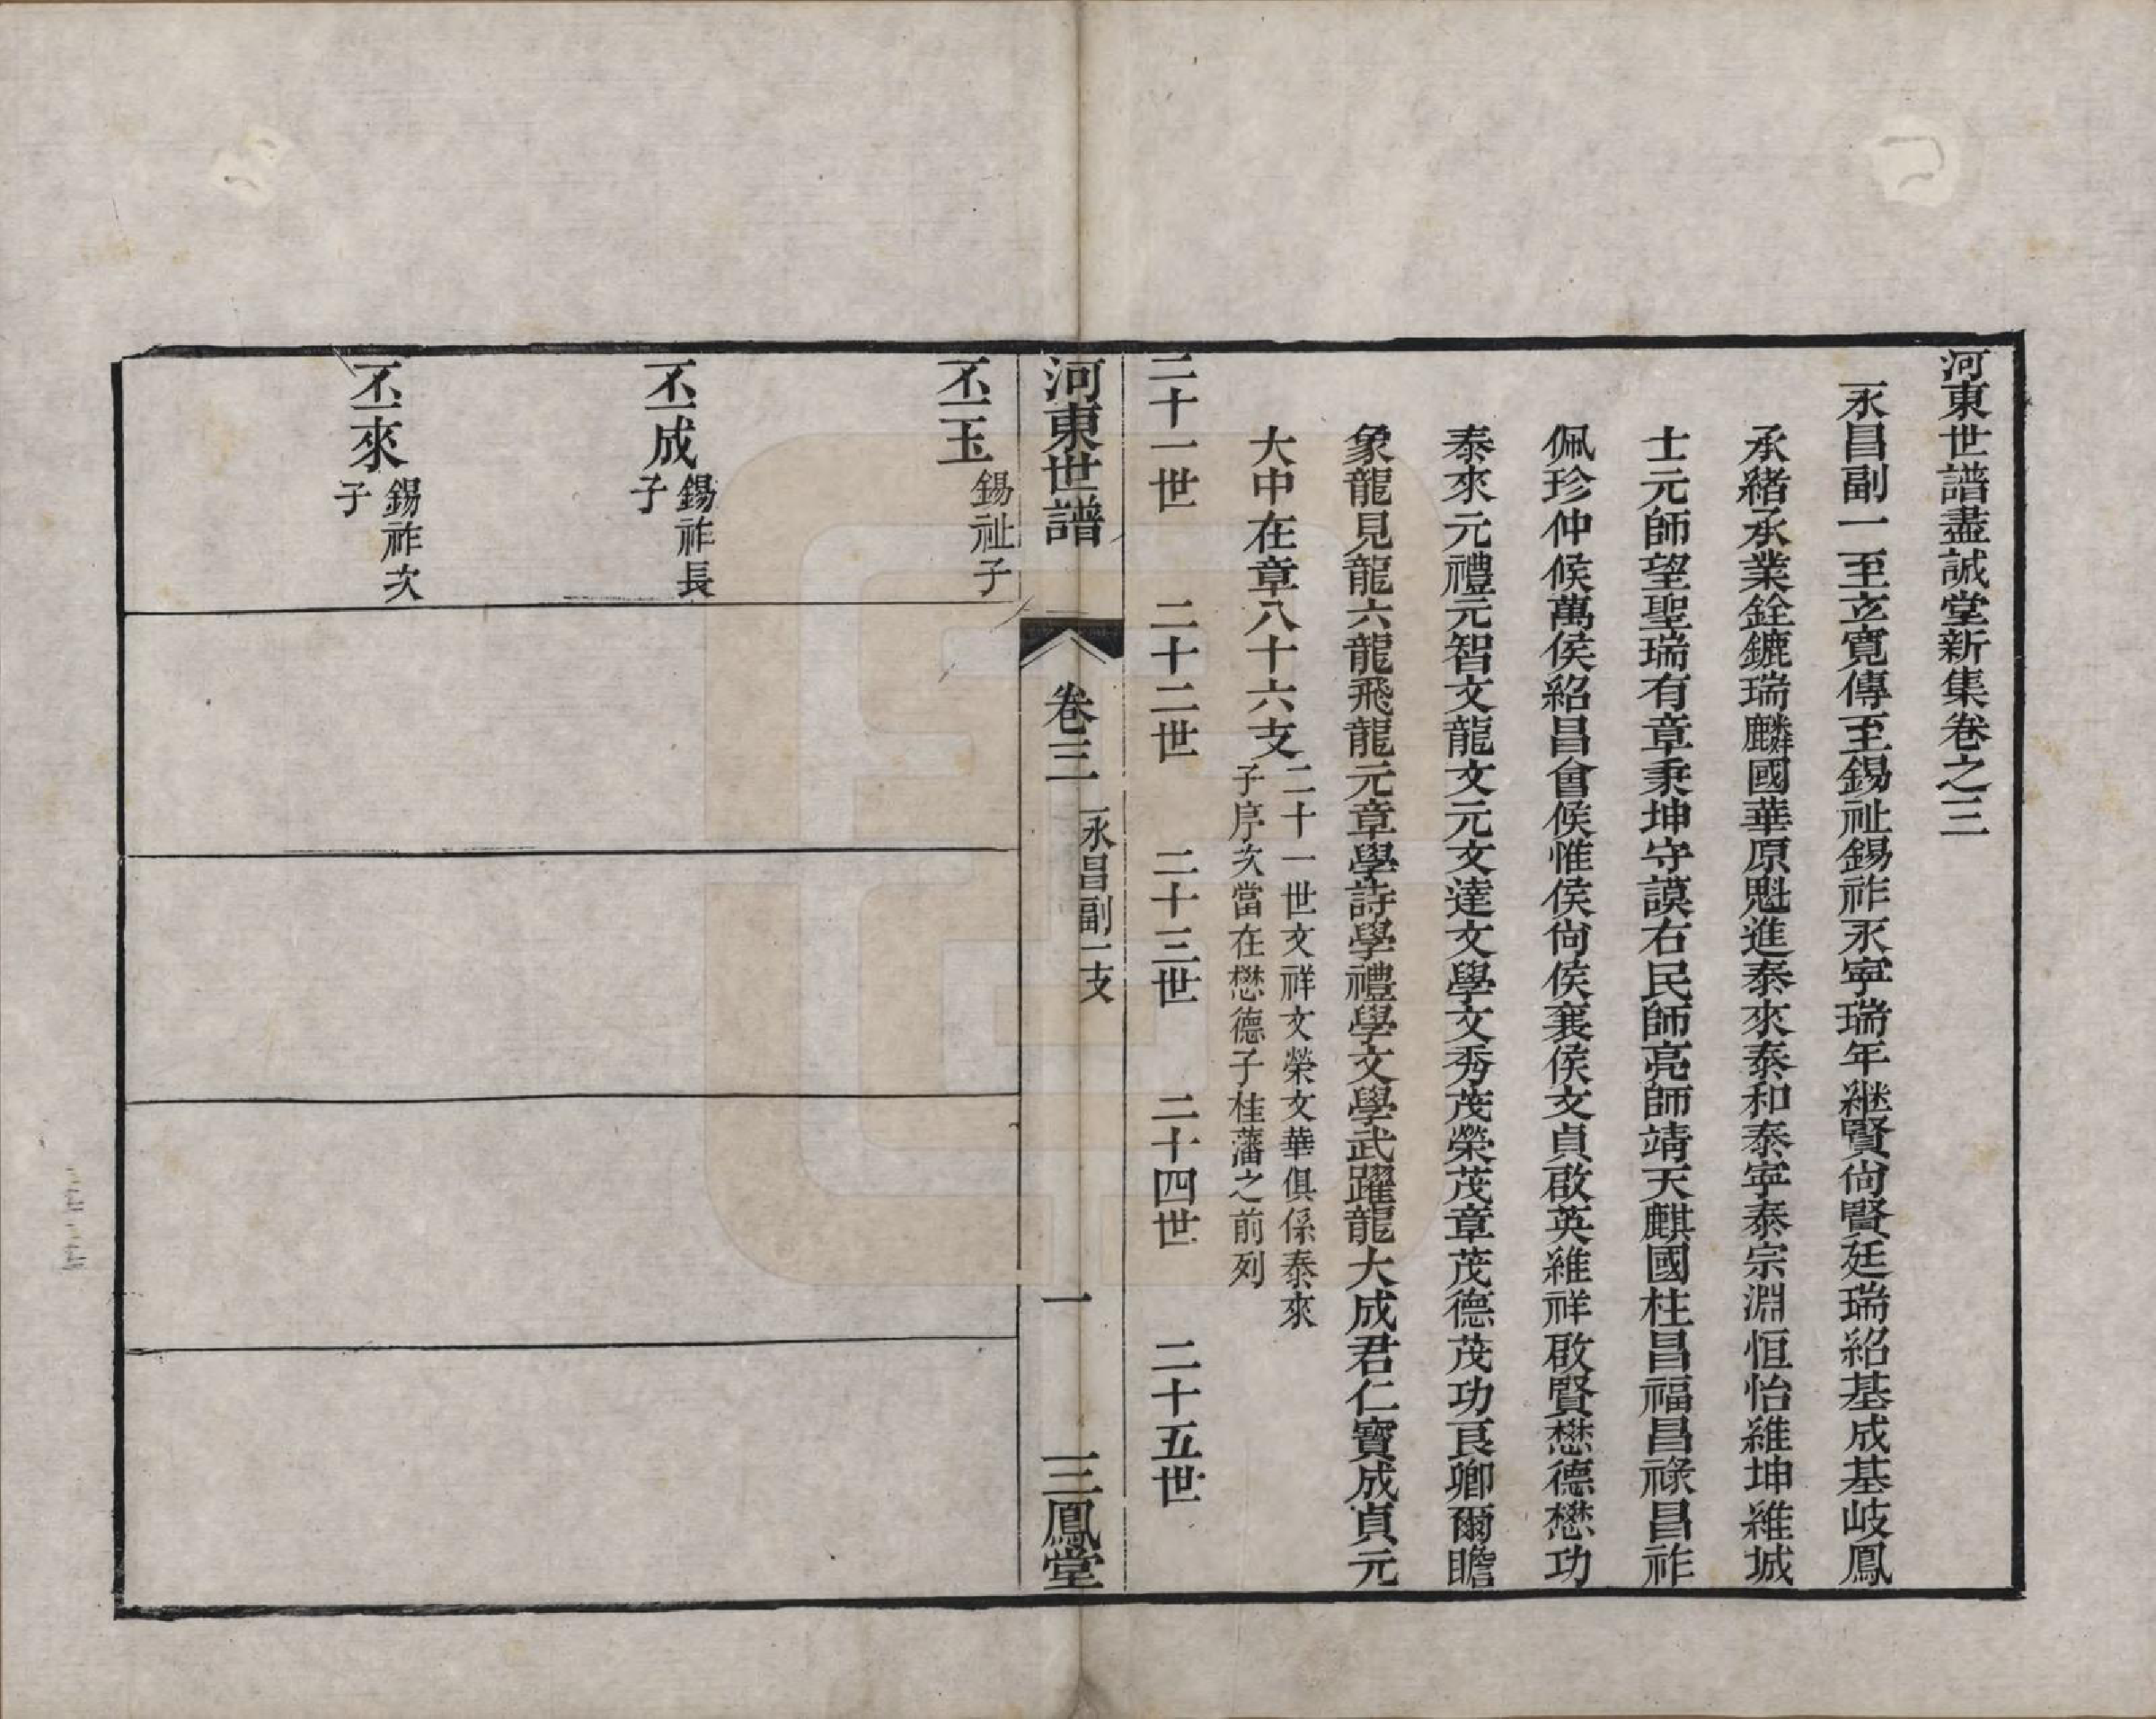 河東世譜盡誠堂新集卷之三
永昌副一至立寬傳至錫祉錫祚永寧瑞年繼賢尙賢廷瑞紹基成基岐鳳
承緒承業銓鑣瑞麟國華原魁進泰來泰和泰寧泰宗淵恒怡維坤維城
士元師望聖瑞有章秉坤守謨右民師亮師靖天麒國柱昌福昌祿昌祚
佩珍仲候萬侯紹昌會候惟侯尙侯襄侯文貞啟英維祥啟賢懋德懋功
泰來元禮元智文龍文元文達文學文秀茂榮茂章茂德茂功良卿爾瞻
象龍見龍六龍飛龍元章學詩學禮學文學武躍龍大成君仁寶成貞元
大中在章八十六支
二十一世文祥文榮文華俱係泰來
子序次當在懋德子桂藩之前列
二十一世　二十二世　二十三世　二十四世　二十五世
河東世譜　卷三　永昌副一支　一　三鳳堂
丕玉
錫祉子
丕成
錫祚長
子
丕來
錫祚次
子